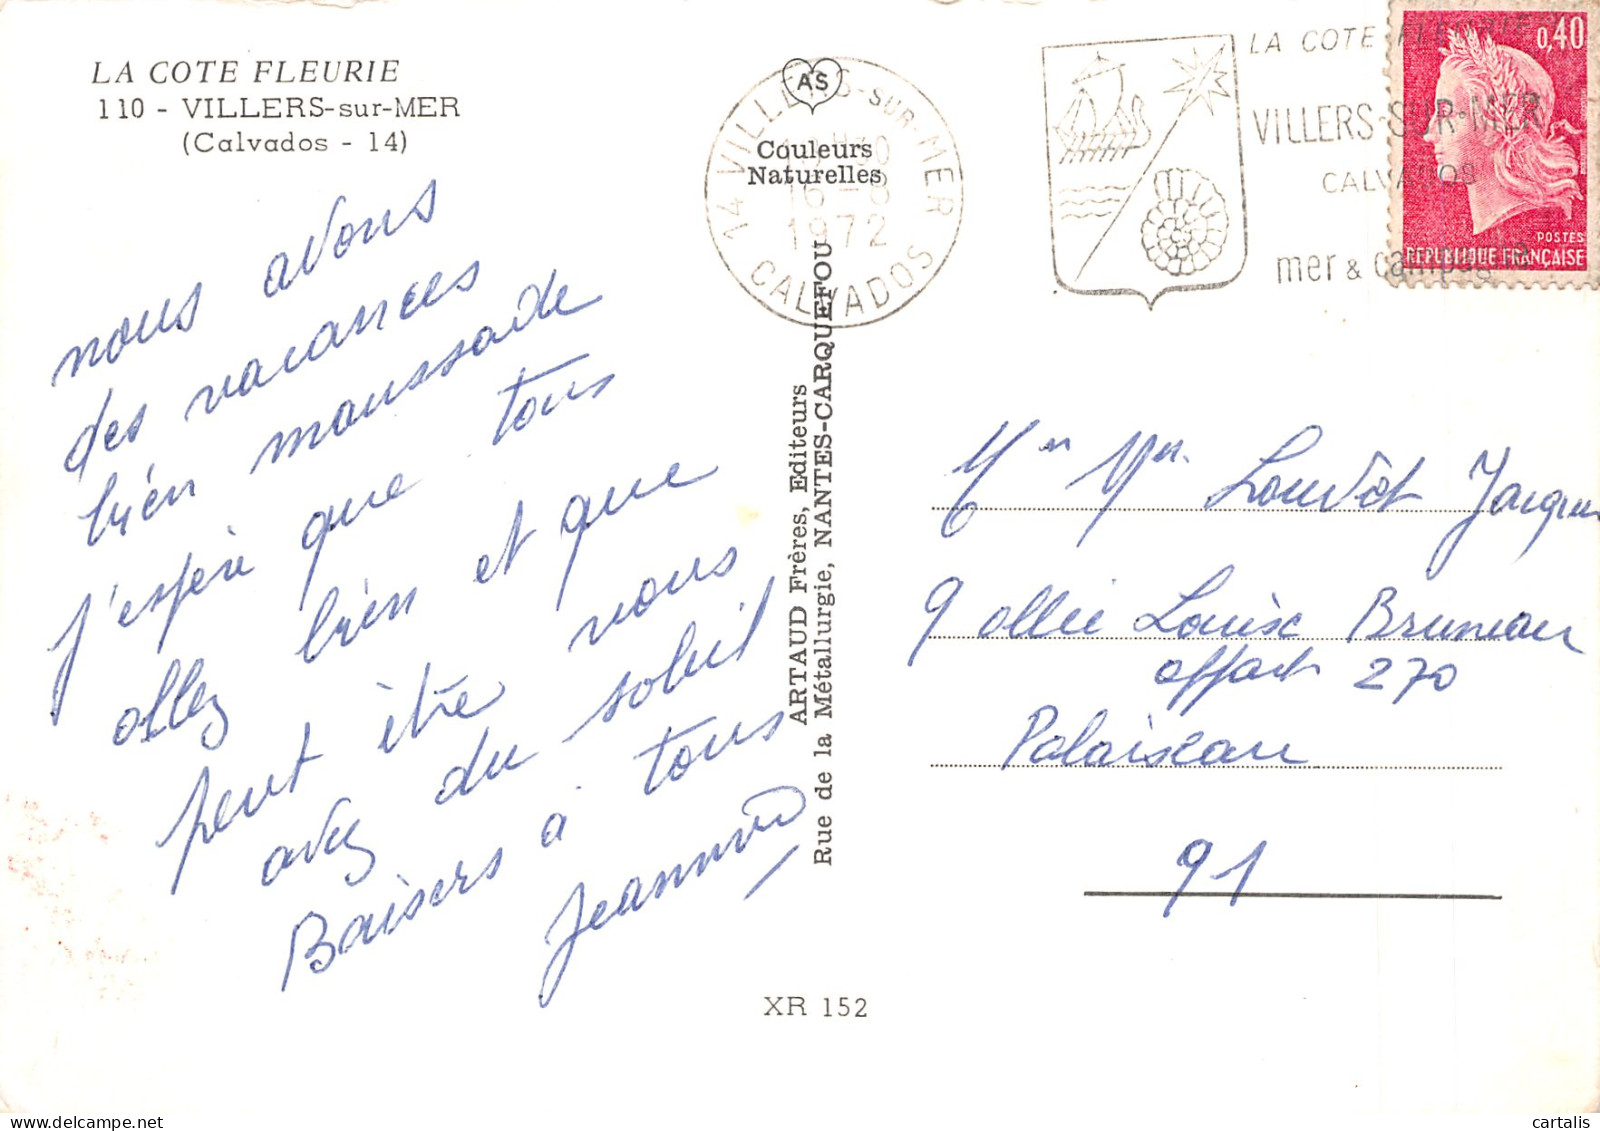 LA COTE FLEURIE
110 - VILLERS-sur-MER
(Calvados - 14)
nous avons
des vacances
bien maussade
j'espère que tous
allez bien et que
peut être vous
avez du soleil
Baisers à tous
AS
Couleurs
Naturelles
14 VILLERS-SUR-MER
16-8
1972
CALVADOS
ARTAUD Frères, Editeurs
Rue de la Métallurgie, NANTES-CARQUEFOU
XR 152
LA COTE FLEURIE
VILLERS-SUR-MER
CALVADOS
mer & campagne
0,40
POSTES
REPUBLIQUE FRANÇAISE
Louvet Jacques
9 allée Louise Bruneau
appart 270
Palaiseau
91
cartalis
delcampe.net